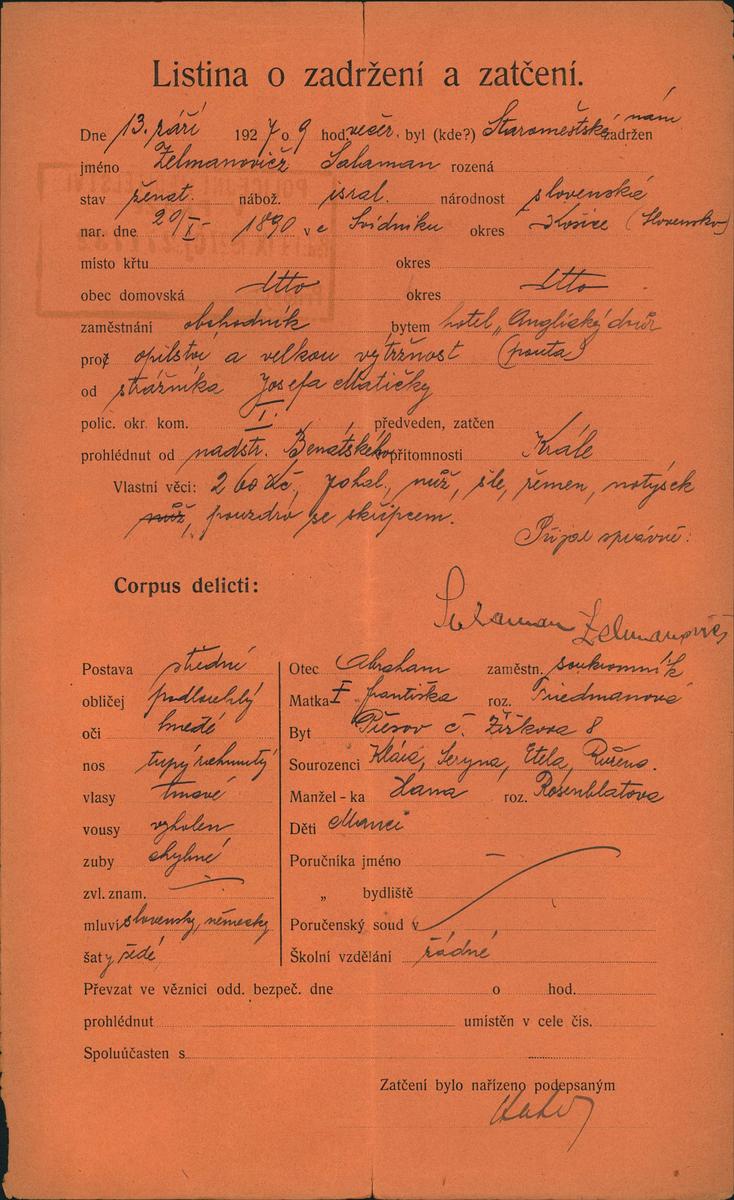 Listina o zadržení a zatčení.
Dne 13. září 1927 o 9 hod. večer. byl (kde?) Staroměstské nám zadržen
jméno Zelmanovič Salaman rozená
stav ženat. nábož. isral. národnost slovenská
nar. dne 20/X- 1890 v e Svidniku okres Košice (Slovensko)
místo křtu okres
obec domovská dtto okres dtto
zaměstnání obchodník bytem hotel „Anglický dvůr
proč opilství a velkou výtržnost (pouta)
od strážníka Josefa Matičky
polic. okr. kom. I. předveden, zatčen
prohlédnut od nadstr. Benátského v přítomnosti Krále
Vlastní věci: 260 Kč, nůž, šle, řemen, notýsek
nůž, pouzdro se skřipcem.
Přijal správně:
Salaman Zelmanovič
Corpus delicti:
Postava střední
obličej podlouhlý
oči hnědé
nos tupý
vlasy tmavé
vousy vyholen
zuby chybné
zvl. znam. —
mluví slovensky, německy
šaty šedé
Otec Abraham zaměstn. soukromník
Matka františka roz. Friedmanová
Byt Přesov č. Žižkova 8
Sourozenci Klára, Seryna, Etela, Růžena.
Manžel-ka Hana roz. Rosenblatova
Děti Manci
Poručníka jméno —
„ bydliště
Poručenský soud v
Školní vzdělání řádné
Převzat ve věznici odd. bezpeč. dne o hod.
prohlédnut umístěn v cele čis.
Spoluúčasten s
Zatčení bylo nařízeno podepsaným